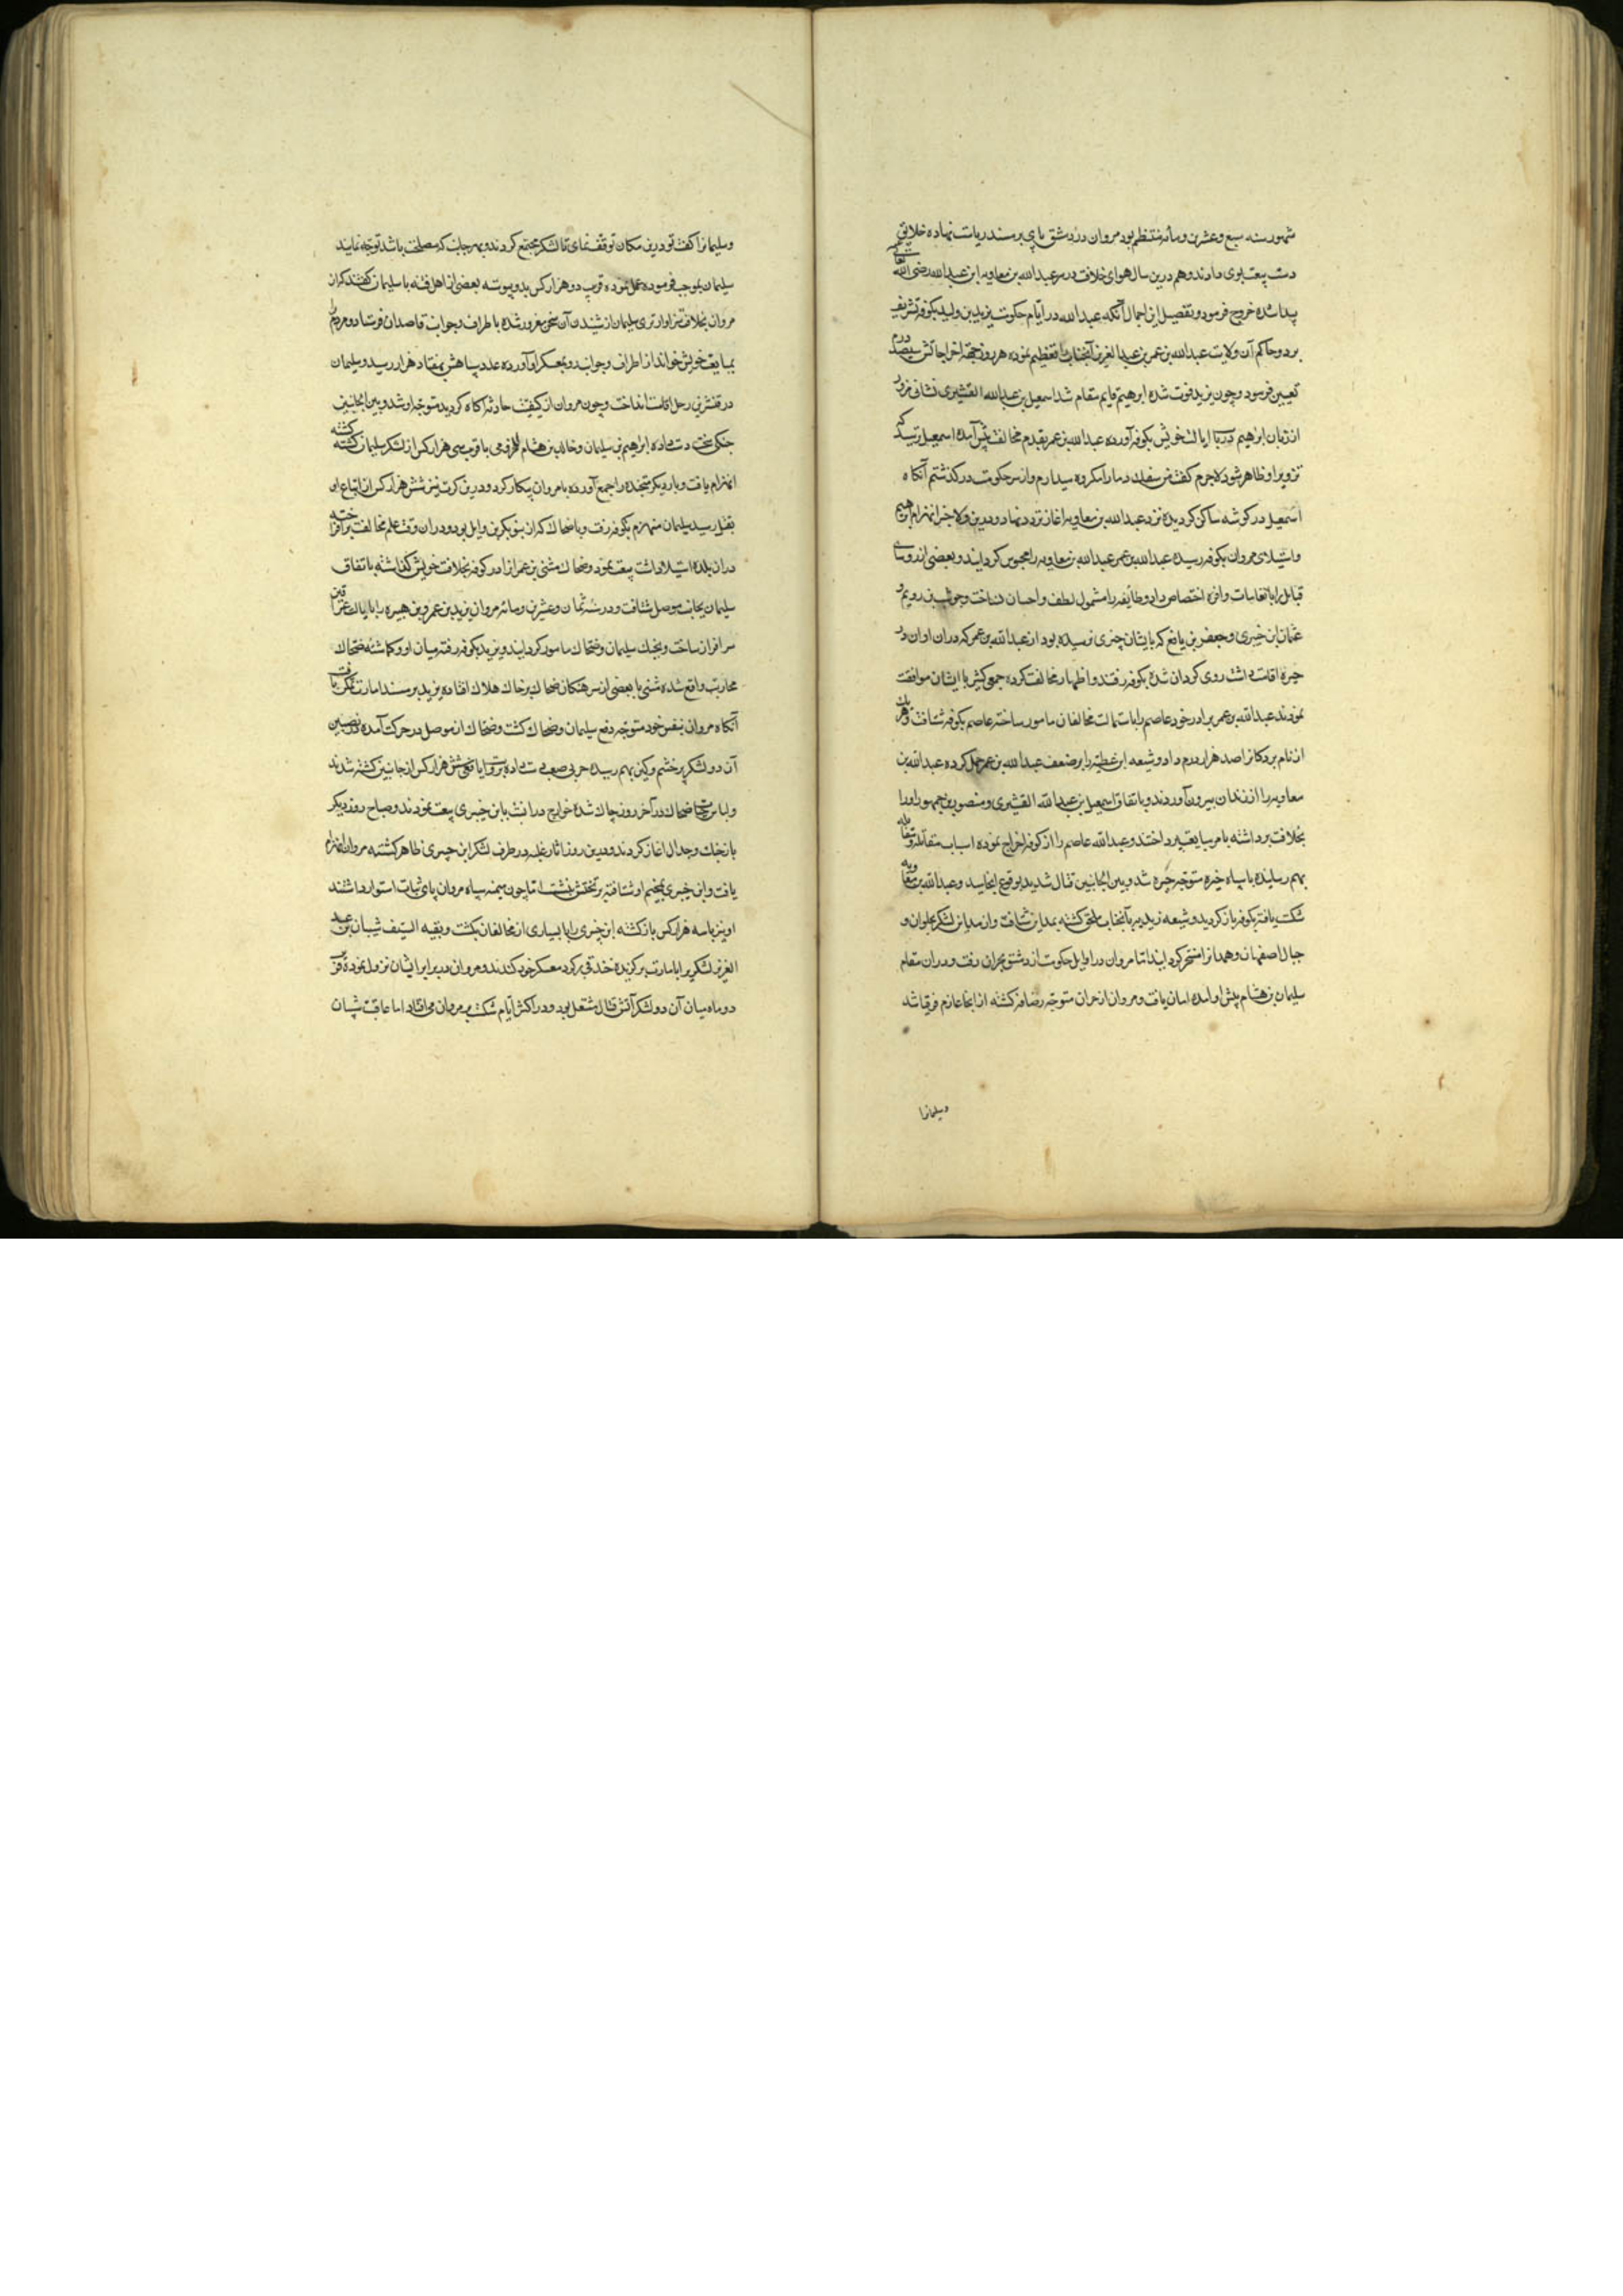 شهور سنه سبع و عشرین و مائه منتظم بود مروان در دمشق پای بر مسند ریاست نهاده خلایق
دست بیعت بوی دادند و هم درین سال هوای خلافت در سر عبدالله بن معاویه ابن عبدالله رضی الله
پیدا شده خروج فرمود و تفصیل این اجمال آنکه عبدالله در ایام حکومت یزید بن ولید بکوفه تشریف
برد و حاکم آن ولایت عبدالله بن عمر بن عبدالعزیز آنجناب را تعظیم نموده هر روز جهة اخراجاتش سیصد درم
تعیین فرمود و چون یزید فوت شده ابرهیم قایم مقام شد اسمعیل بن عبدالله القشیری نشانی مزور
از زبان ابرهیم در باب ایالت خویش بکوفه آورده عبدالله بن عمر بقدم مخالفت پیش آمد و اسمعیل ترسید که
تزویر او ظاهر شود لاجرم گفت من سفک دما را مکروه میدارم و از سر حکومت در گذشتم آنگاه
اسمعیل در گوشه ساکن گردیده نزد عبدالله بن معاویه آغاز تردد نهاد و درین ولا خبر انهزام ابرهیم
و استیلای مروان بکوفه رسیده عبدالله بن عمر عبدالله بن معاویه را محبوس گردانید و بعضی از روسای
قبایل را بانعامات وافره اختصاص داد و طایفه را مشمول لطف و احسان نساخت و حوشب بن رویم و
عثمان ابن خیبری و جعفر بن نافع که بایشان چیزی نرسیده بود از عبدالله بن عمر که در آن اوان در
حیره اقامت داشت روی گردان شده بکوفه رفتند و اظهار مخالفت کرده جمعی کثیر با ایشان موافقت
نمودند عبدالله بن عمر برادر خود عاصم را باستمالت مخالفان مامور ساخته عاصم بکوفه شتافت و هر یک
از نام بردگانرا صد هزار درم داد و شیعه این عطیه را بر ضعف عبدالله بن عمر حمل کرده عبدالله بن
معاویه را از زندان بیرون آوردند و باتفاق اسمعیل بن عبدالله القشیری و منصور بن جمهور او را
بخلافت برداشته بامر مبایعت پرداختند و عبدالله عاصم را از کوفه اخراج نموده اسباب مقاتله و مقابله
بهم رسانیده با سپاه خیره متوجه حیره شد و بین الجانبین قتال شدید بوقوع انجامید و عبدالله بن معاویه
شکست یافته بکوفه باز گردید و شیعه زیدیه بآنجناب ملحق گشته بمداین شتافت و از مداین لشکر بحلوان و
جبال اصفهان و همدانرا مسخر گردانید اما مروان در اوایل حکومت از دمشق بحران رفت و در آن مقام
سلیمان بن هشام پیش او آمده امان یافت و مروان از حران متوجه رضافه گشته از انجا عازم قرقیسا شد
وسلیمانرا
وسلیمانرا گفت تو درین مکان توقف نمای تا لشکر مجتمع گردند و بهر جانب که مصلحت باشد توجه نمایند
سلیمان بموجب فرموده عمل نموده قریب دو هزار کس بدو پیوسته بعضی از اهل فتنه با سلیمان گفتند که از
مروان بخلافت سزاوارتری سلیمان از شنیدن آن سخن مغرور شده باطراف و جوانب قاصدان فرستاد و مردم را
بمبایعت خویش خواند از اطراف و جوانب رو بمعسکر او آورده عدد سپاهش بهفتاد هزار رسید و سلیمان
در قنسرین رحل اقامت انداخت و چون مروان از کیفیت حادثه آگاه گردید متوجه او شد و بین الجانبین
جنگی سخت دست داده ابرهیم بن سلیمان و خالد بن هشام المخزومی با قریب سی هزار کس از لشکر سلیمان کشته گشته
انهزام یافت و بار دیگر سپاه را جمع آورده با مروان پیکار کرد و درین کرت نیز شش هزار کس از اتباع او
بقتل رسید سلیمان منهزم بکوفه رفت و با ضحاک که از بنو بکر بن وایل بود و در آن وقت علم مخالفت برافراخته
در آن بلده استیلا داشت بیعت نمود و ضحاک مثنی بن عمرانرا در کوفه بخلافت خویش گذاشته باتفاق
سلیمان بجانب موصل شتافت و در سنه ثمان و عشرین و مائه مروان یزید بن عمرو بن هبیره را بایالت عراقین
سرافراز ساخت و بجنک سلیمان و ضحاک مامور گردانید و یزید بکوفه رفته میان او و گماشته ضحاک
محاربت واقع شده مثنی با بعضی از سرهنکان ضحاک بر خاک هلاک افتاده یزید بر مسند امارت تمکن یافت
آنگاه مروان بنفس خود متوجه دفع سلیمان و ضحاک گشت و ضحاک از موصل در حرکت آمده در نصیبین
آن دو لشکر پر خشم و کین بهم رسیده حربی صعب دست داده بروایتی شش هزار کس از جانبین کشته شدند
و لباس حیات ضحاک در آخر روز چاک شده خوارج در آن شب با بن خیبری بیعت نمودند و صباح روز دیگر
باز جنگ و جدال آغاز کردند و درین روز آثار غلبه در طرف لشکر ابن خیبری ظاهر گشته مروان انهزام
یافت و ابن خیبری بخیم او شتافته بر تختش بنشست اما چون میمنه سپاه مروان پای ثبات استوار داشتند
او نیز با سه هزار کس باز گشته ابن خیبری را با بسیاری از مخالفان بکشت و بقیه السیف شیبان بن عبد
العزیز لشکری را بامارت برگزیده خندقی بر گرد معسکر خود کندند و مروان در برابر ایشان نزول نموده قرب
دو ماه میان آن دو لشکر آتش قتال مشتعل بود و در اکثر ایام شکست بر مروان می افتاد اما عاقبت شیبان